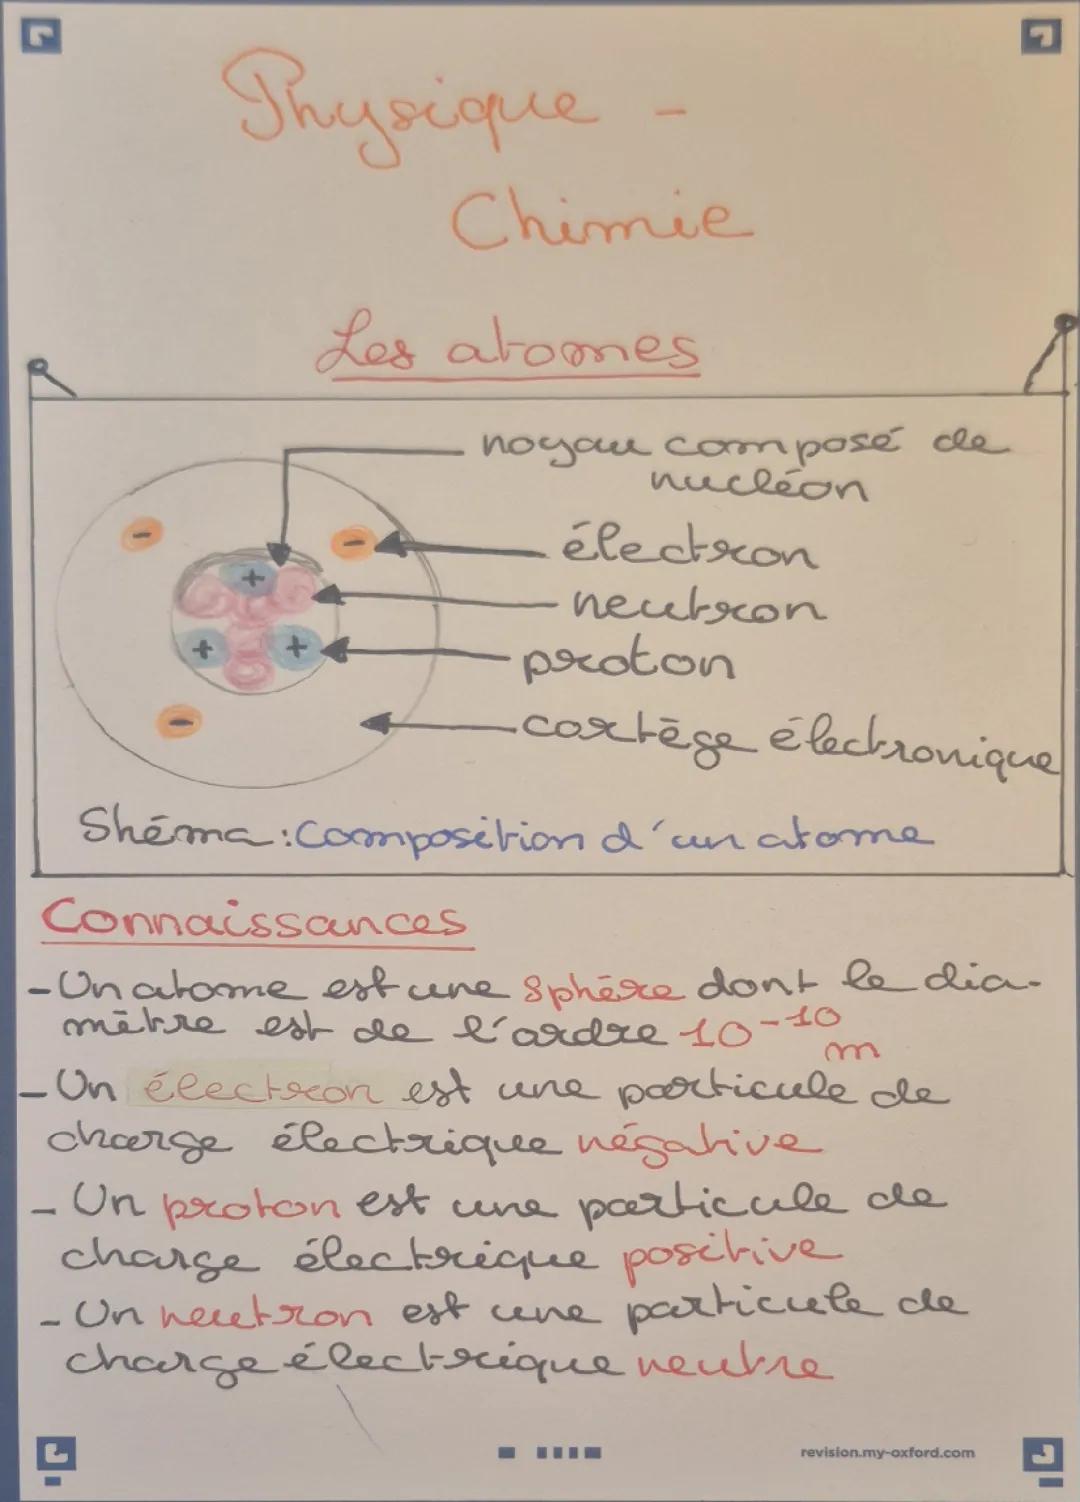 Physique -
Chimie
Les atomes
noyau composé de
nucléon
électron
neutron
proton
cortège électronique
Shéma : Composition d'un atome
Connaissances
- Un atome est une sphère dont le dia-
mètre est de l'ordre 10-10
m
- Un électron est une particule de
charge électrique négative
- Un proton est une particule de
charge électrique positive
- Un neutron est une particule de
charge électrique neutre
revision.my-oxford.com